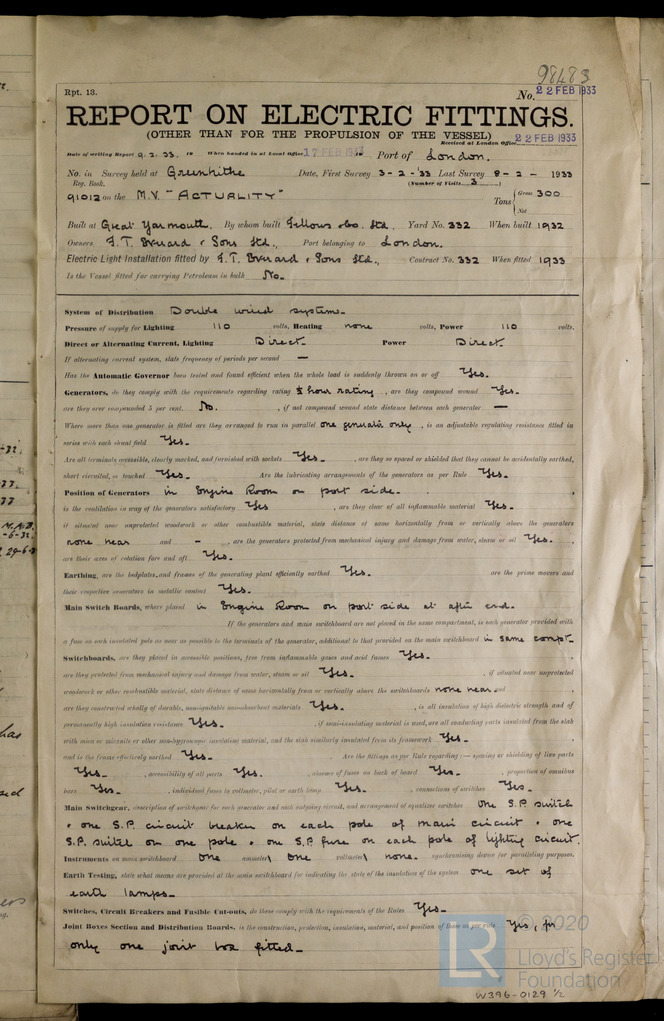 98483
Rpt. 13.
No. 22 FEB 1933
REPORT ON ELECTRIC FITTINGS.
(OTHER THAN FOR THE PROPULSION OF THE VESSEL) 22 FEB 1933
Received at London Office
Date of writing Report 9.2.33. 19 When handed in at Local Office 17 FEB 1933 19 Port of London.
No. in Survey held at Greenhithe Date, First Survey 3-2-'33 Last Survey 8-2- 1933
Reg. Book. (Number of Visits 3)
91012 on the M.V. "ACTUALITY" Tons { Gross 300
Net
Built at Great Yarmouth. By whom built Fellows &Co. Ltd. Yard No. 332 When built 1932
Owners F.T. Everard & Sons Ltd., Port belonging to London.
Electric Light Installation fitted by F.T. Everard & Sons Ltd., Contract No. 332 When fitted 1933
Is the Vessel fitted for carrying Petroleum in bulk No.
System of Distribution Double wired system.
Pressure of supply for Lighting 110 volts, Heating none volts, Power 110 volts.
Direct or Alternating Current, Lighting Direct Power Direct.
If alternating current system, state frequency of periods per second —
Has the Automatic Governor been tested and found efficient when the whole load is suddenly thrown on or off Yes.
Generators, do they comply with the requirements regarding rating ½ hour rating, are they compound wound Yes.
are they over compounded 5 per cent. No. , if not compound wound state distance between each generator —
Where more than one generator is fitted are they arranged to run in parallel one generator only , is an adjustable regulating resistance fitted in
series with each shunt field Yes.
Are all terminals accessible, clearly marked, and furnished with sockets Yes. , are they so spaced or shielded that they cannot be accidentally earthed,
short circuited, or touched Yes. Are the lubricating arrangements of the generators as per Rule Yes.
Position of Generators in Engine Room on port side.
is the ventilation in way of the generators satisfactory Yes , are they clear of all inflammable material Yes.
if situated near unprotected woodwork or other combustible material, state distance of same horizontally from or vertically above the generators
none near and - , are the generators protected from mechanical injury and damage from water, steam or oil Yes.
are their axes of rotation fore and aft Yes.
Earthing, are the bedplates and frames of the generating plant efficiently earthed Yes. are the prime movers and
their respective generators in metallic contact Yes.
Main Switch Boards, where placed in Engine Room on port side at after end.
If the generators and main switchboard are not placed in the same compartment, is each generator provided with
a fuse on each insulated pole as near as possible to the terminals of the generator, additional to that provided on the main switchboard in same compt.
Switchboards, are they placed in accessible positions, free from inflammable gases and acid fumes Yes.
are they protected from mechanical injury and damage from water, steam or oil Yes. , if situated near unprotected
woodwork or other combustible material, state distance of same horizontally from or vertically above the switchboards none near and
are they constructed wholly of durable, non-ignitable non-absorbent materials Yes. , is all insulation of high dielectric strength and of
permanently high insulation resistance Yes. , if semi-insulating material is used, are all conducting parts insulated from the slab
with mica or micanite or other non-hygroscopic insulating material, and the slab similarly insulated from its framework Yes.
and is the frame effectively earthed Yes. Are the fittings as per Rule regarding:— spacing or shielding of live parts
Yes. , accessibility of all parts Yes. , absence of fuses on back of board Yes. , proportion of omnibus
bars Yes. , individual fuses to voltmeter, pilot or earth lamp Yes. , connections of switches Yes.
Main Switchgear, description of switchgear for each generator and each outgoing circuit, and arrangement of equaliser switches One S.P. switch
& one S.P. circuit breaker on each pole of main circuit & one
S.P. switch on one pole & one S.P. fuse on each pole of lighting circuit.
Instruments on main switchboard One ammeter One voltmeter none. synchronising device for paralleling purposes.
Earth Testing, state what means are provided at the main switchboard for indicating the state of the insulation of the system one set of
earth lamps.
Switches, Circuit Breakers and Fusible Cut-outs, do these comply with the requirements of the Rules Yes.
Joint Boxes Section and Distribution Boards, is the construction, protection, insulation, material, and position of these as per rule Yes, for
only one joint box fitted.
© 2020
Lloyd's Register
Foundation
LR
W396-0129 1/2